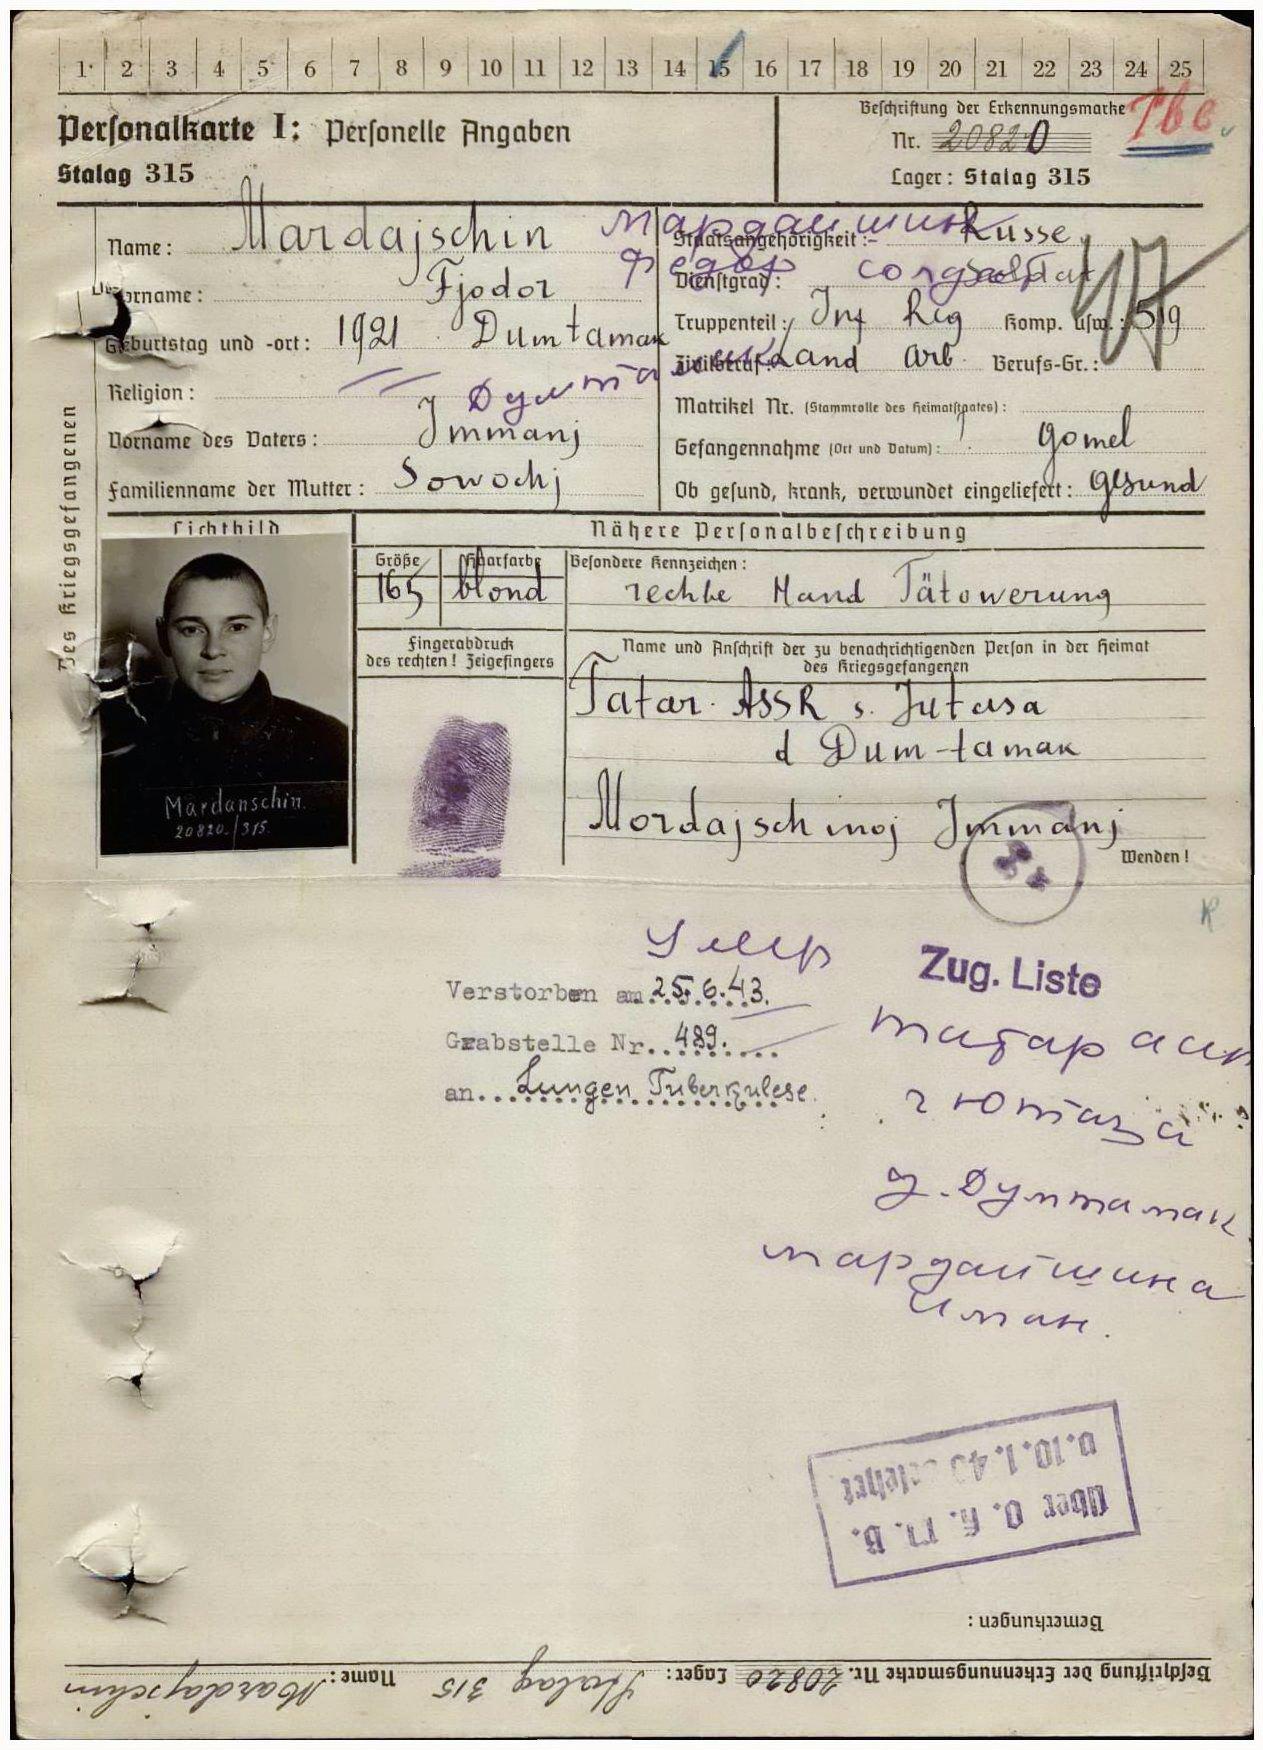 1 2 3 4 5 6 7 8 9 10 11 12 13 14 15 16 17 18 19 20 21 22 23 24 25
Personalkarte I: Personelle Angaben
Stalag 315
Beschriftung der Erkennungsmarke
Nr. 20820
Lager: Stalag 315
Tbc
Des Kriegsgefangenen
Name: Mardajschin
Мардайшин
Vorname: Fjodor
Федор
Geburtstag und -ort: 1921 Dumtamak
Религion:
Думтамак
Vorname des Vaters: Jmmanj
Familienname der Mutter: Sowochj
Staatsangehörigkeit: Russe
Dienstgrad: Soldat
солдат
Truppenteil: Inf Reg Komp. usw.: 519
47
Zivilberuf: Land Arb. Berufs-Gr.:
Matrikel Nr. (Stammrolle des Heimatstaates):
Gefangennahme (Ort und Datum): Gomel
Ob gesund, krank, verwundet eingeliefert: gesund
Lichtbild
Nähere Personalbeschreibung
Größe Haarfarbe Besondere Kennzeichen:
165 blond rechte Hand Tätowerung
Fingerabdruck
des rechten! Zeigefingers
Name und Anschrift der zu benachrichtigenden Person in der Heimat
des Kriegsgefangenen
Tatar. ASSR s. Jutasa
d Dum-tamak
Mordajschinoj Jmmanj
Wenden!
Mardanschin.
20820./315.
К
Умер
Verstorben am 25.6.43.
Grabstelle Nr. 489.
an Lungen Tuberkulese.
Zug. Liste
татар аср
г Ютаза
д. Думтамак
Мардайшина
Иман.
Über O. K. M. B.
v. 10. 1. 43
Bemerkungen:
Beschriftung der Erkennungsmarke Nr. 20820 Lager: Stalag 315 Name: Mardajschin